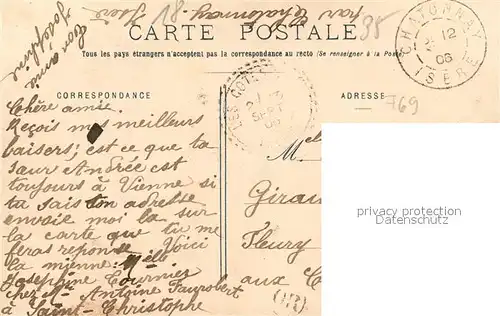 Ton amie
Joséphine
par Chatonnay
Isère
18
95
CARTE POSTALE
Tous les pays étrangers n'acceptent pas la correspondance au recto (Se renseigner à la Poste)
CHATONNAY
12
06
ISÈRE
CORRESPONDANCE
ADRESSE
769
SEPT
Chère amie.
Reçois mes meilleurs
baisers; est ce que ta
sœur Andrée est
toujours à Vienne si
tu sais son adresse
envoie moi la sur
la carte que tu me
feras reponse. Voici
la mienne: Melle
Josephine Tournier
chez Mr Antoine
à Saint-Christophe
Melle
Girau
Fleury
aux C
OR
privacy protection
Datenschutz